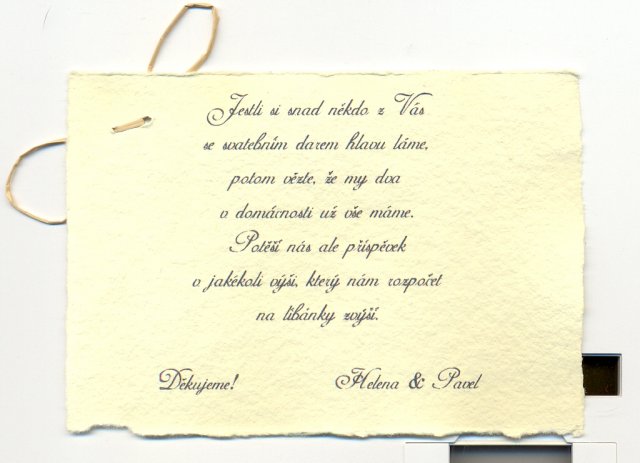 Jestli si snad někdo z Vás
se svatebním darem hlavu láme,
potom vězte, že my dva
v domácnosti už vše máme.
Potěší nás ale příspěvek
v jakékoli výši, který nám rozpočet
na líbánky zvýší.
Děkujeme!
Helena & Pavel